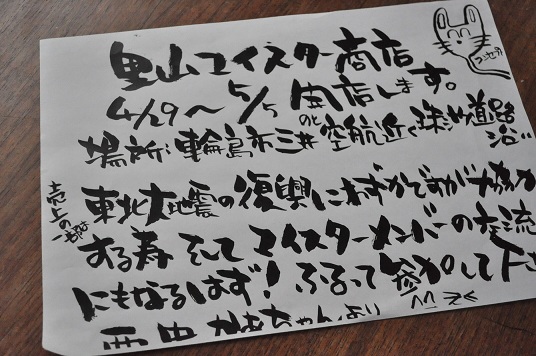 里山マイスター商店
4/29〜5/5 開店します。
場所：輪島市三井 のと 空航近く珠洲道路沿い
売上の一部は
東北大地震の復興にわずかですが協力
する寿 そして マイスターメンバーの交流
にもなるはず！ふるって参加して下さ
西中 かあちゃんより